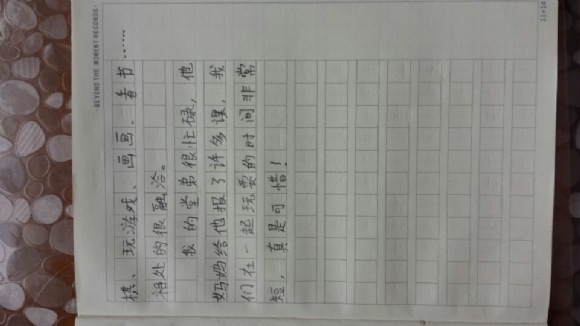 BEYOND THE MOMENT RECORDS
棋、玩游戏、画画、看书……
相处的很融洽。
我的堂弟很忙碌，他
妈妈给他报了许多课，我
们在一起玩耍的时间非常
短，真是可惜！